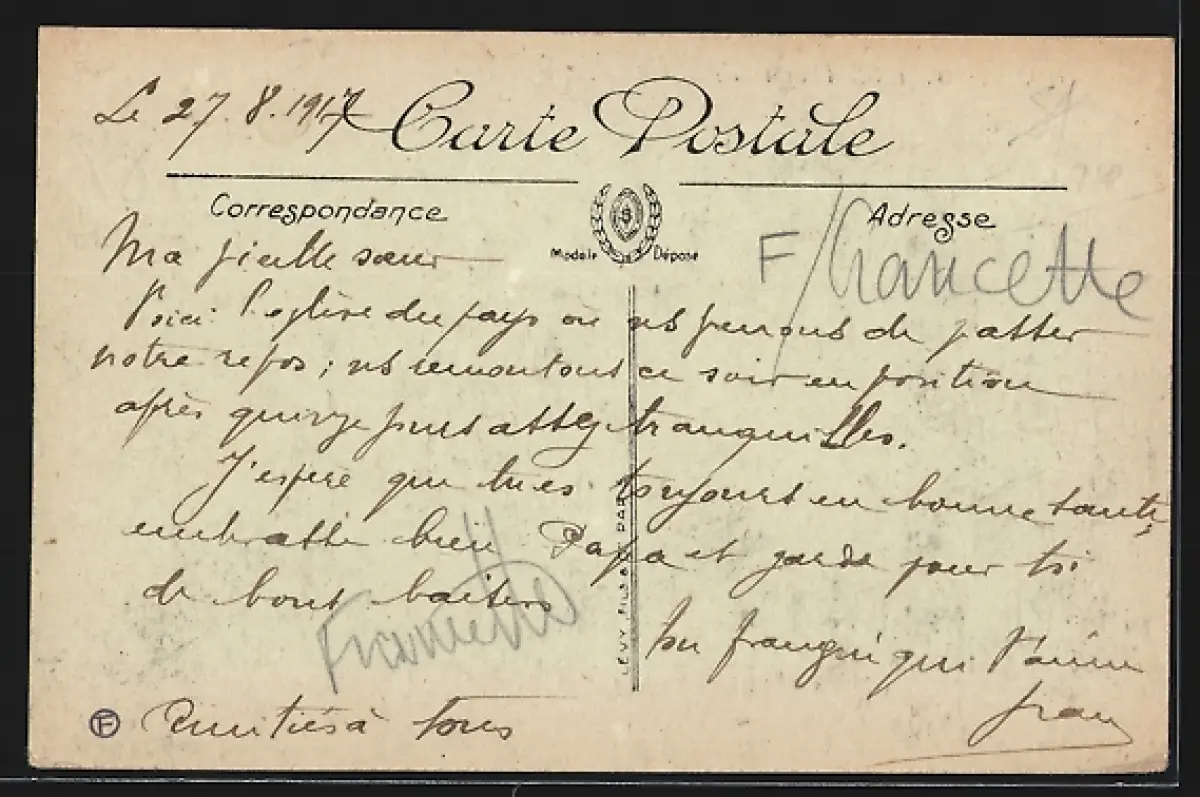 Le 27.8.1917
Carte Postale
Correspondance
Adresse
S
Modèle Déposé
F Francette
Ma vieille sœur
Voici l'eglise du pays où ns venons de passer
notre repos; ns remontons ce soir en position
après quinze jours assez tranquilles.
J'espère que tu es toujours en bonne santé,
embrasse bien Papa et garde pour toi
de bons baisers
Francette
ton frangin qui t'aime
Amitiés à tous
LÉVY FILS PARIS
F